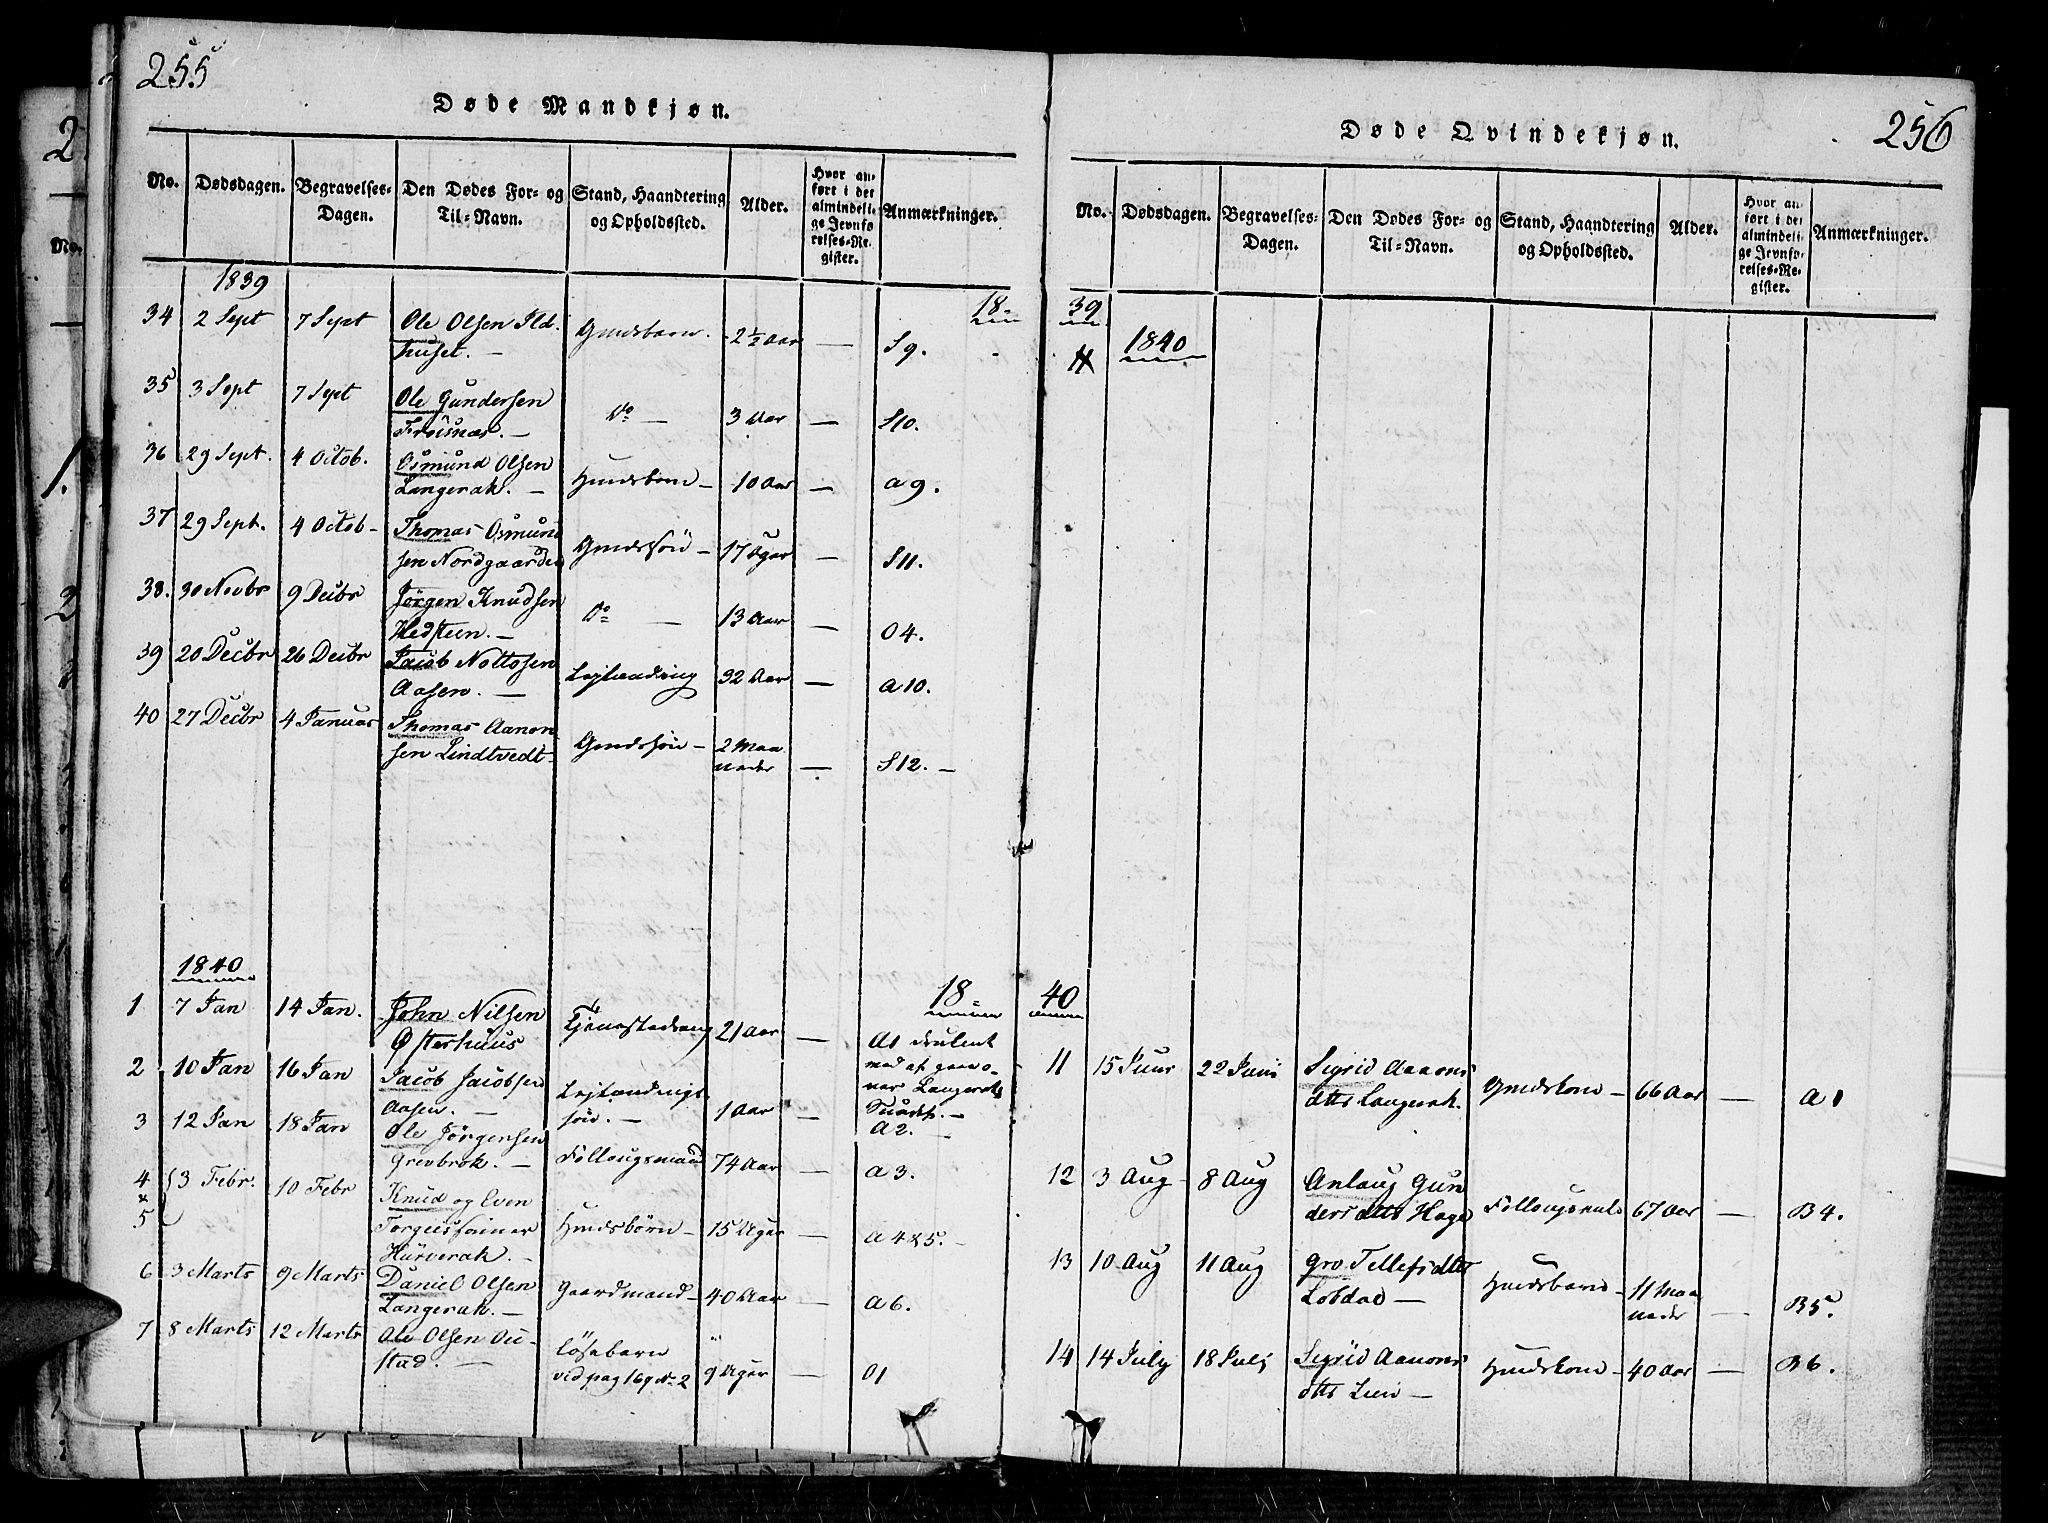 255
Døde Mandkjøn.
No. Dødsdagen. Begravelses-Dagen. Den Dødes For- og Til-Navn. Stand, Haandtering og Opholdssted. Alder. Hvor anført i det almindelige Jevnførelses-Register. Anmærkninger.
1839
34 2 Sept 7 Sept Ole Olsen Ild-
huset. — Gmdsbarn. 2½ Aar — S9.
35 3 Sept 7 Sept Ole Gundersen
Frøisnæs. — do — 3 Aar — S10.
36 29 Sept. 4 Octob. Osmund Olsen
Langerak. — Hmdsbarn — 10 Aar — a 9.
37 29 Sept. 4 Octob - Thomas Osmund
sen Nordgaarden Gmdssøn — 17 Uger — S11.
38. 30 Novbr 9 Decbr Jørgen Knudsen
Hedsteen. — do — 13 Aar — O4.
39 20 Decbr 26 Decbr Jacob Noltosen
Aasen. — Leilænding 32 Aar — a 10.
40 27 Decbr 4 Januar Thomas Aanon
sen Lindtvedt - Gmdssøn — 2 Maa
neder — S12. —
1840
1 7 Jan 14 Jan. John Nilsen
Østerhuus Tjenestedreng 21 Aar — A1
Langeraks
2 10 Jan 16 Jan Jacob Jacobsen
Aasen. — Leilændings
søn. — 1 Aar — A2. —
3 12 Jan 18 Jan Ole Jørgensen
Grevbrok. — Føllougsmand 74 Aar — a 3.
4 & 5 3 Febr. 10 Febr Knud og Even
Torgiussønner
Hurverak. — Hmdsbørn — 15 Uger — a 4&5. —
6 3 Marts 9 Marts Daniel Olsen
Langerak. — Gaardmand — 40 Aar — a 6.
7 8 Marts 12 Marts Ole Olsen Ou-
stad. — Løsebarn
vid pag 169 No 2 9 Uger — O1
256
Døde Qvindekjøn.
No. Dødsdagen. Begravelses-Dagen. Den Dødes For- og Til-Navn. Stand, Haandtering og Opholdssted. Alder. Hvor anført i det almindelige Jevnførelses-Register. Anmærkninger.
18- 39
1840
18- 40
11 15 Juni 22 Juni Sigrid Aanons
dtts Langerak. Gmdskone — 66 Aar — A 1
12 3 Aug - 8 Aug Anlaug Gun
dersdtts Hage Føllougskule 67 Aar — B4.
13 10 Aug 11 Aug Gro Tellefsdtts
Løbdal — Hmdsbarn — 11 Maa
neder — B5.
14 14 July 18 Julj Sigrid Aanons
dtts Lien — Hmdskone — 40 Aar — B6.